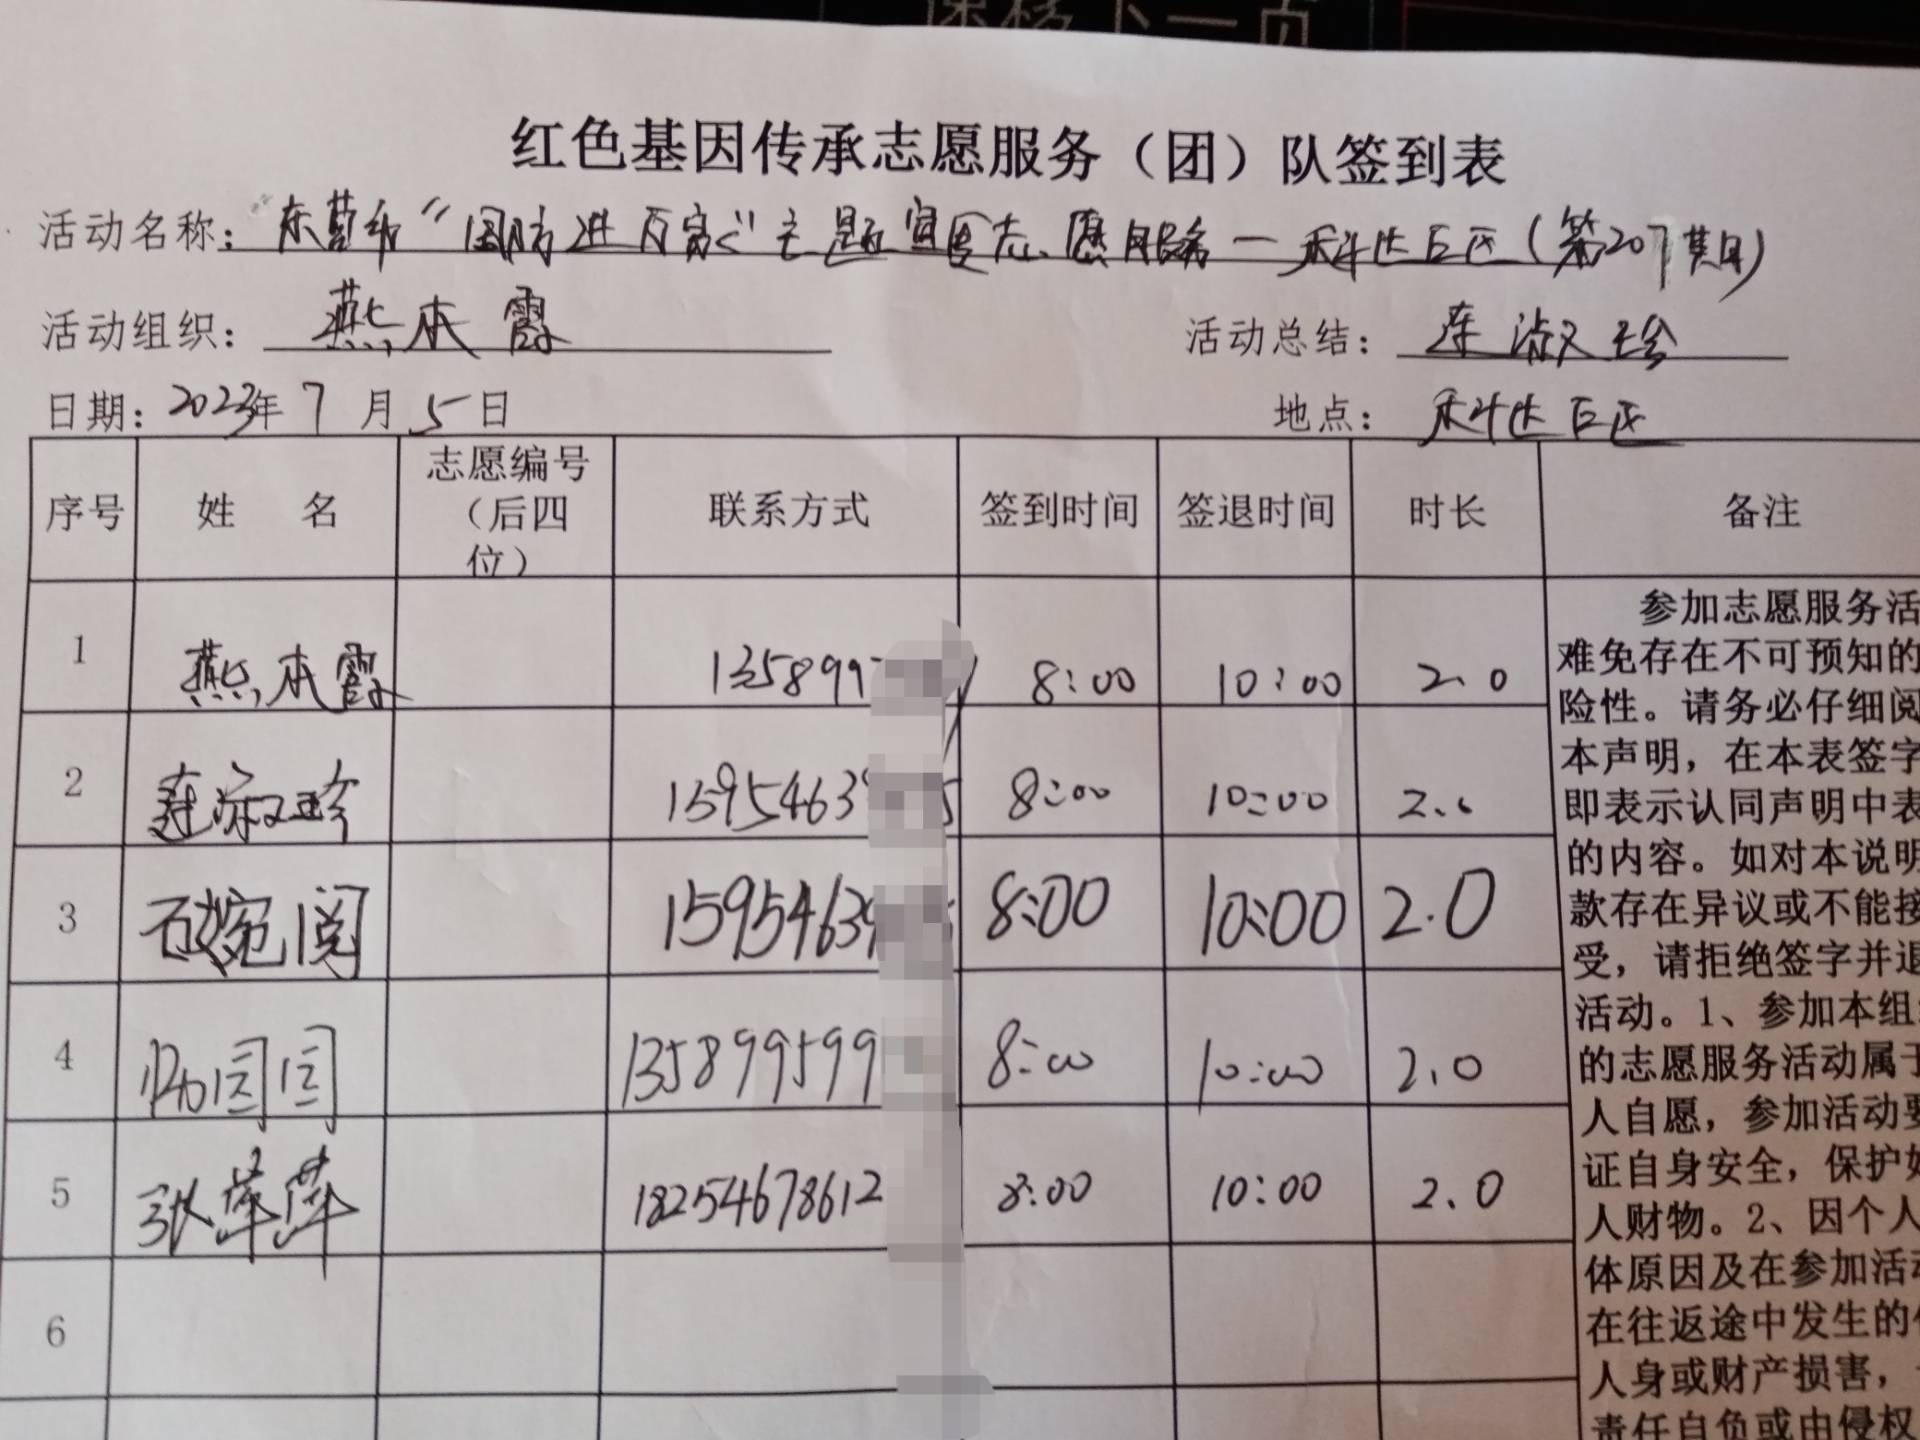 红色基因传承志愿服务（团）队签到表
活动名称：东营市“国防进万家”主题宣传志愿服务—科达巨区（第207期）
活动组织：燕本霞 活动总结：连淑珍
日期：2023年7月5日 地点：科达巨区
序号 姓名 志愿编号（后四位） 联系方式 签到时间 签退时间 时长 备注
1 燕本霞 135899 8:00 10:00 2.0
2 连淑珍 15954639 5 8:00 10:00 2.0
3 阅 15954639 8:00 10:00 2.0
4 135899599 8:00 10:00 2.0
5 张萍萍 18254678612 8:00 10:00 2.0
6
参加志愿服务活
难免存在不可预知的
险性。请务必仔细阅
本声明，在本表签字
即表示认同声明中表
的内容。如对本说明
款存在异议或不能接
受，请拒绝签字并退
活动。1、参加本组
的志愿服务活动属于
人自愿，参加活动要
证自身安全，保护好
人财物。2、因个人
体原因及在参加活动
在往返途中发生的
人身或财产损害，
责任自负或由侵权